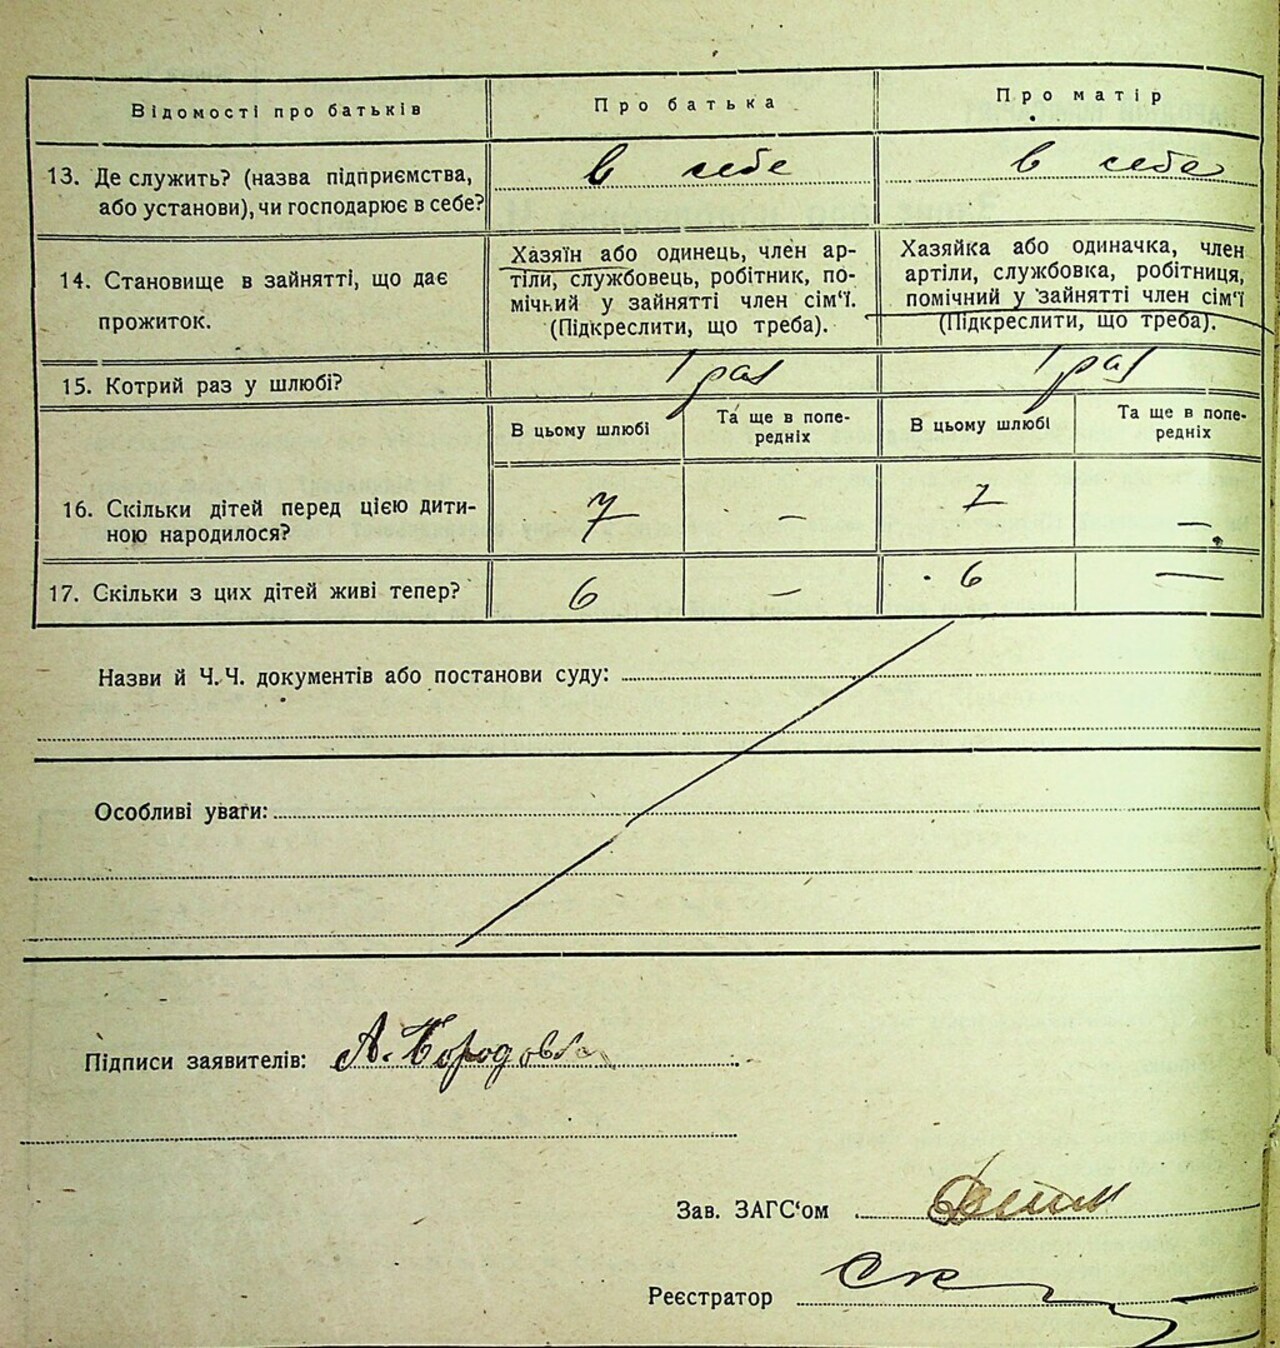 Відомості про батьків
Про батька
Про матір
13. Де служить? (назва підприємства,
або установи), чи господарює в себе?
в себе
в себе
14. Становище в зайнятті, що дає
прожиток.
Хазяїн або одинець, член ар-
тіли, службовець, робітник, по-
мічний у зайнятті член сім'ї.
(Підкреслити, що треба).
Хазяйка або одиначка, член
артіли, службовка, робітниця,
помічний у зайнятті член сім'ї
(Підкреслити, що треба).
15. Котрий раз у шлюбі?
1 раз
1 раз
В цьому шлюбі
Та ще в попе-
редніх
В цьому шлюбі
Та ще в попе-
редніх
16. Скільки дітей перед цією дити-
ною народилося?
7
—
7
—
17. Скільки з цих дітей живі тепер?
6
—
6
—
Назви й Ч.Ч. документів або постанови суду:
Особливі уваги:
Підписи заявителів: А.
Зав. ЗАГС'ом
Реєстратор